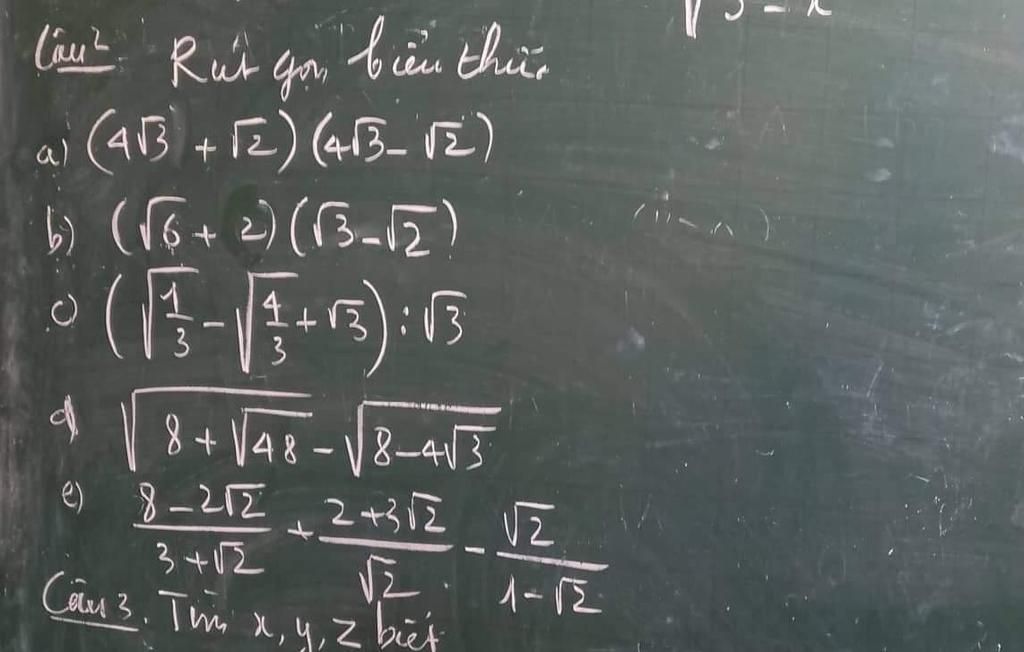 √3-x
Câu 2 Rút gọn biểu thức
a) (4√3 + √2)(4√3 - √2)
b) (√6 + 2)(√3 - √2)
c) (√(1/3) - √(4/3) + √3) : √3
d) √(8 + √48) - √(8 - 4√3)
e) (8 - 2√2)/(3 + √2) + (2 + 3√2)/√2 - √2/(1 - √2)
Câu 3. Tìm x, y, z biết